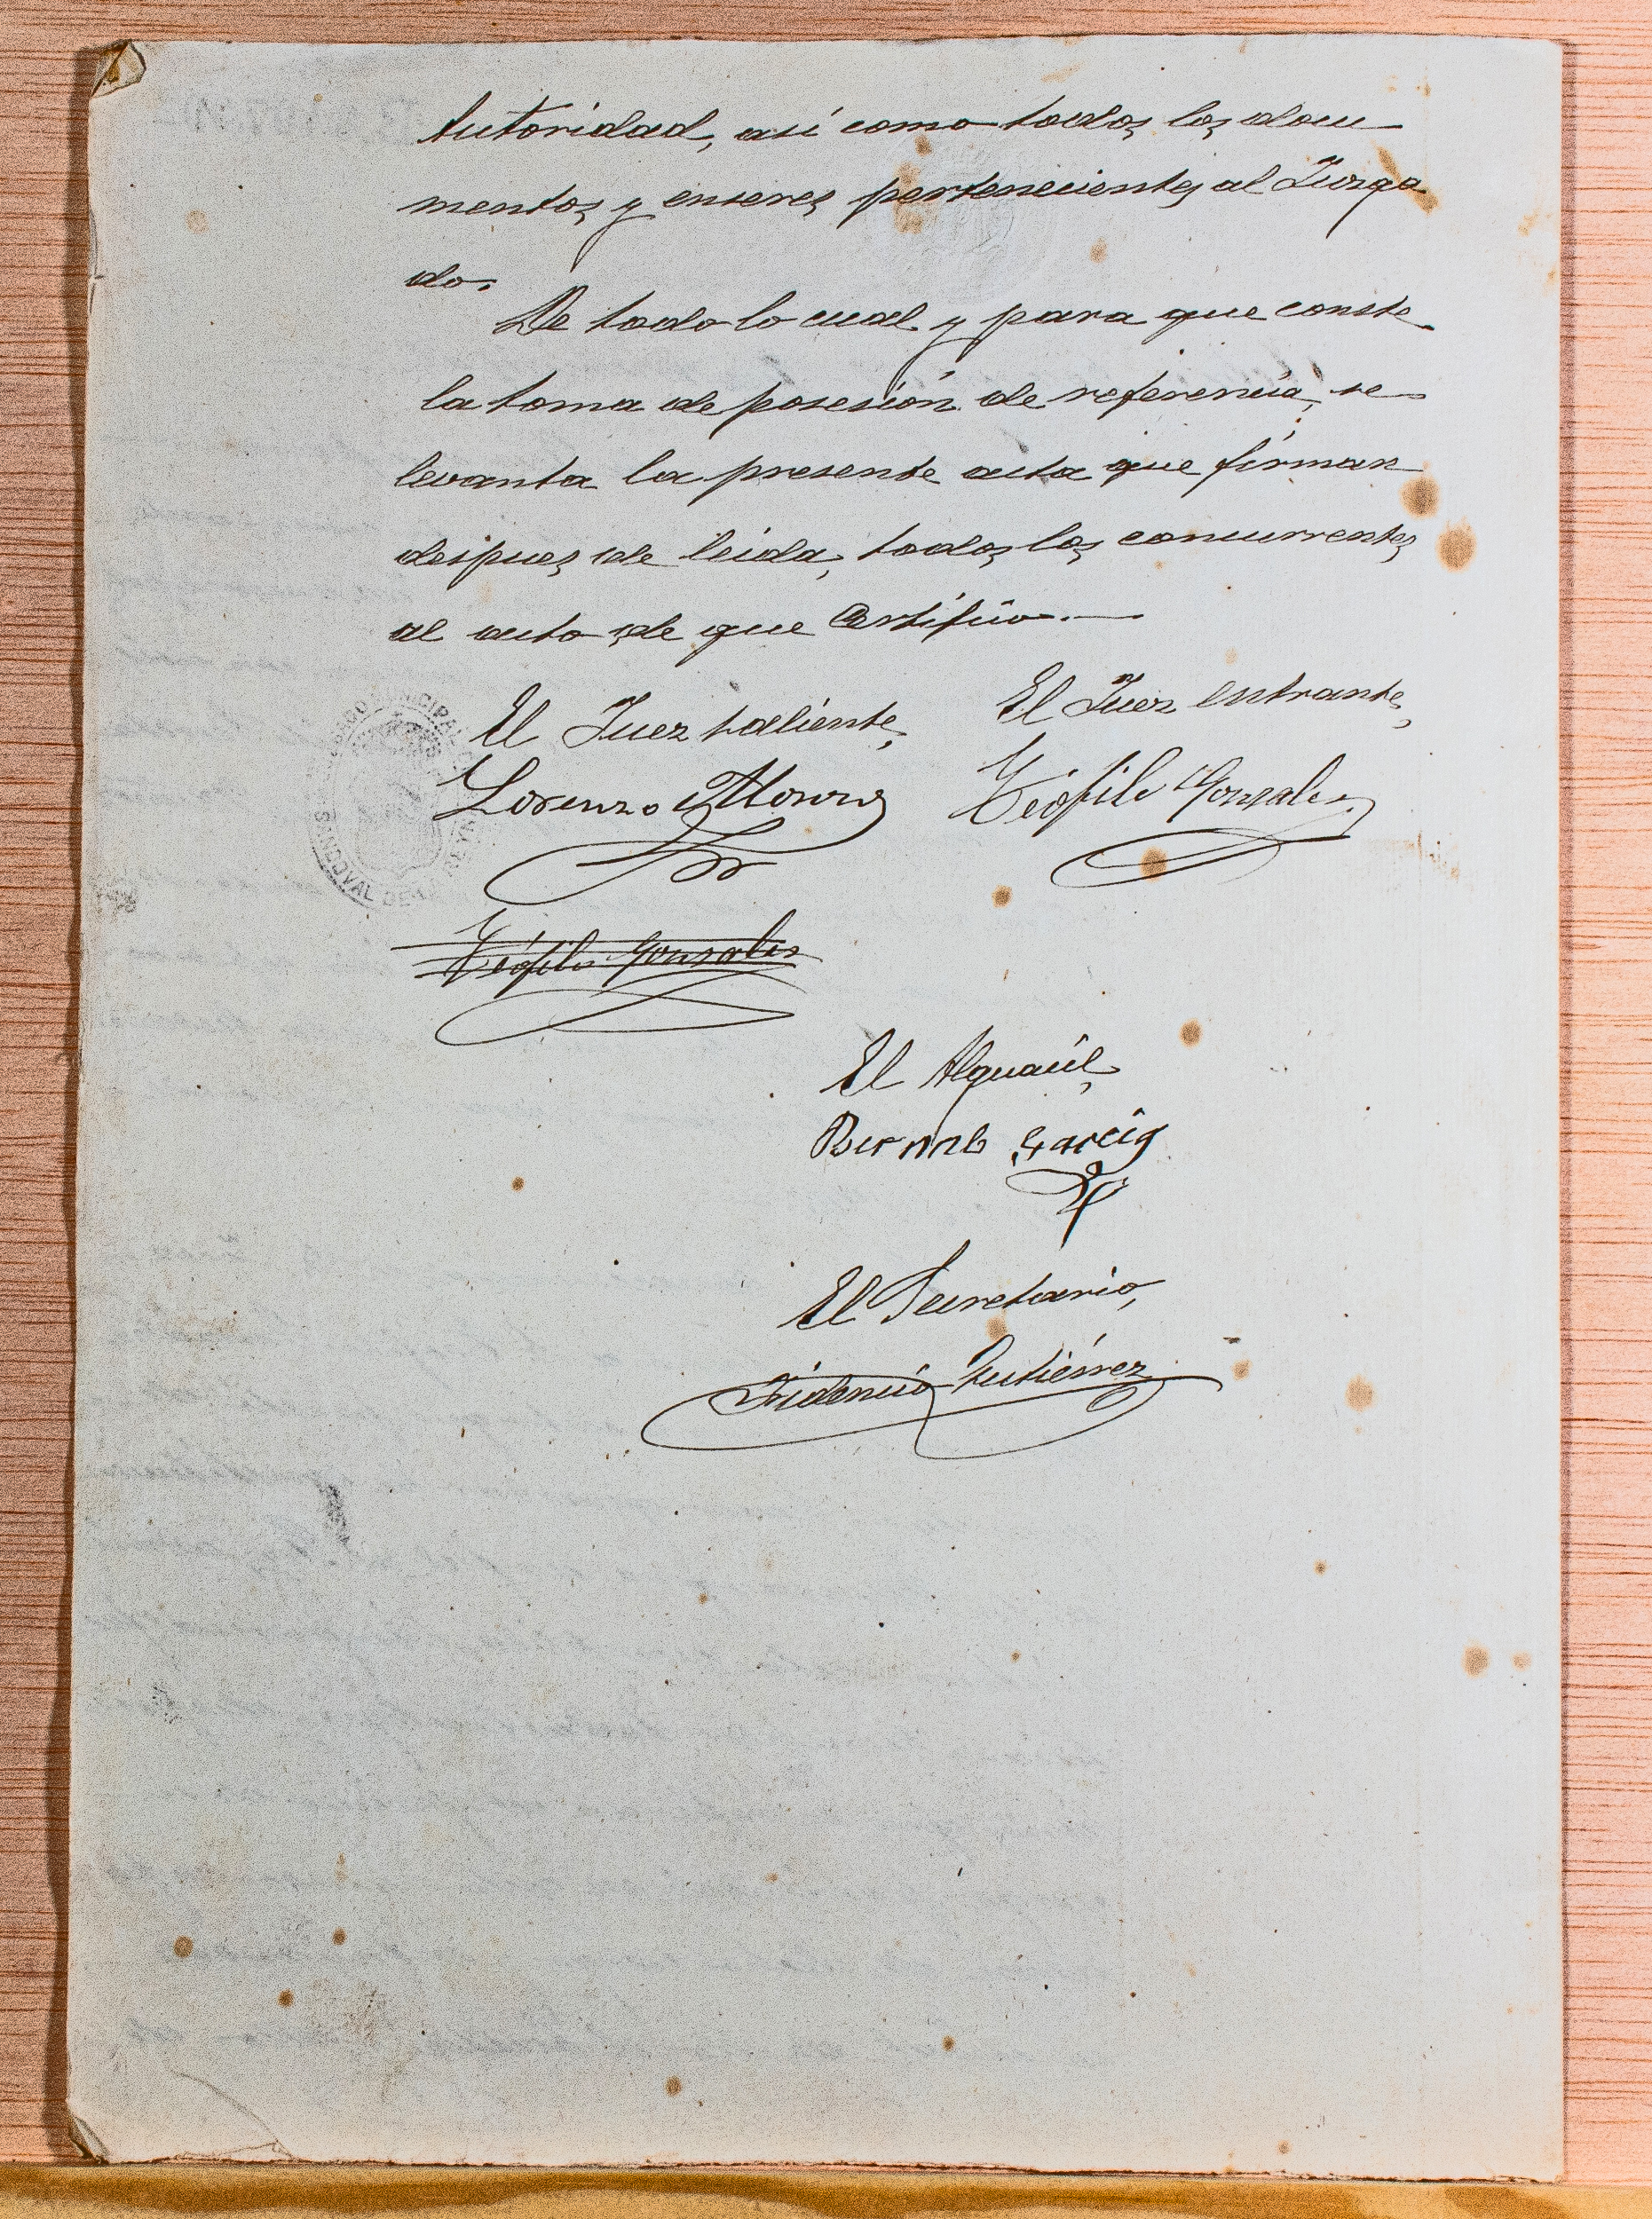 Autoridad, así como todos los docu
mentos y enseres pertenecientes al Juzga
do.
De todo lo cual y para que conste
la toma de posesión de referencia, se
levanta la presente acta que firman
despues de leida, todos los concurrentes
al acto, de que Certifico.—
El Juez saliente, El Juez entrante,
Lorenzo Teófilo Gonzalez
Teófilo Gonzalez
El Alguacil,
Bernabe Garcia
El Secretario,
Fidencio Gutiérrez
JUZGADO MUNICIPAL
SANDOVAL DE LA REINA